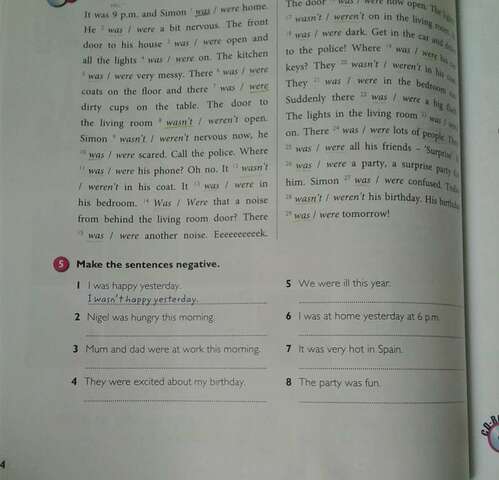 It was 9 p.m. and Simon 1 was / were home.
He 2 was / were a bit nervous. The front
door to his house 3 was / were open and
all the lights 4 was / were on. The kitchen
5 was / were very messy. There 6 was / were
coats on the floor and there 7 was / were
dirty cups on the table. The door to
the living room 8 wasn't / weren't open.
Simon 9 wasn't / weren't nervous now, he
10 was / were scared. Call the police. Where
11 was / were his phone? Oh no. It 12 wasn't
/ weren't in his coat. It 13 was / were in
his bedroom. 14 Was / Were that a noise
from behind the living room door? There
15 was / were another noise. Eeeeeeeeeek.
The door 16 was / were now open. The
17 wasn't / weren't on in the living room,
18 was / were dark. Get in the car and
to the police! Where 19 was / were his
keys? They 20 wasn't / weren't in his
They 21 was / were in the bedroom
Suddenly there 22 was / were a big
The lights in the living room 23 was /
on. There 24 was / were lots of people.
25 was / were all his friends – 'Surprise
26 was / were a party, a surprise party
him. Simon 27 was / were confused.
28 wasn't / weren't his birthday. His birthday
29 was / were tomorrow!
5 Make the sentences negative.
1 I was happy yesterday.
I wasn't happy yesterday.
2 Nigel was hungry this morning.
3 Mum and dad were at work this morning.
4 They were excited about my birthday.
5 We were ill this year.
6 I was at home yesterday at 6 p.m.
7 It was very hot in Spain.
8 The party was fun.
4